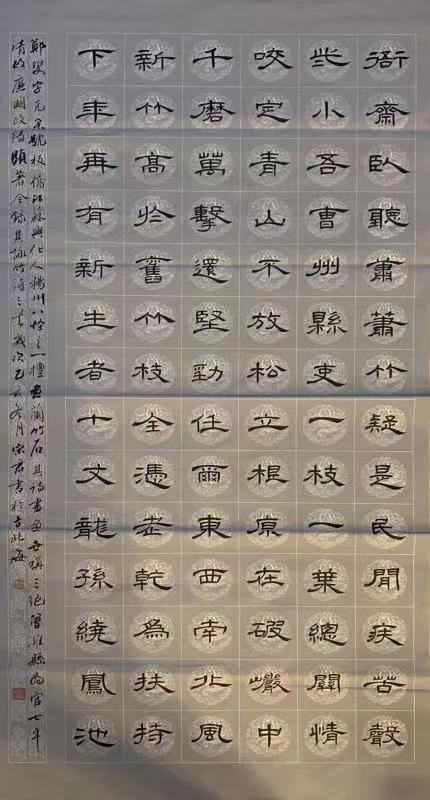 衙齋臥聽蕭蕭竹疑是民間疾苦聲
些小吾曹州縣吏一枝一葉總關情
咬定青山不放松立根原在破巖中
千磨萬擊還堅勁任爾東西南北風
新竹高於舊竹枝全憑老乾為扶持
下年再有新生者十丈龍孫繞鳳池
鄭燮字克柔號板橋江蘇興化人揚州八怪之一擅畫蘭竹石其詩書畫世稱三絕曾縣為官七年
清政廉明政績顯著今錄其詠竹詩三首歲次己亥月書於古北海